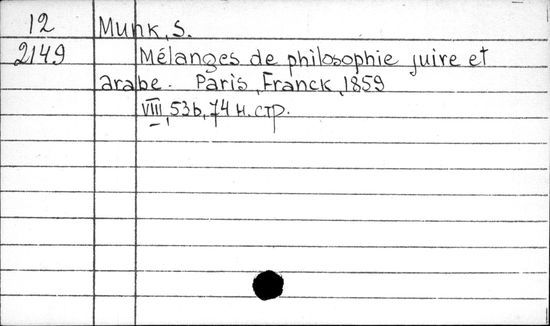 12 Munk, S.
2149 Mélanges de philosophie juire et
arabe. Paris, Franck, 1859
VIII, 536, 74 н. стр.